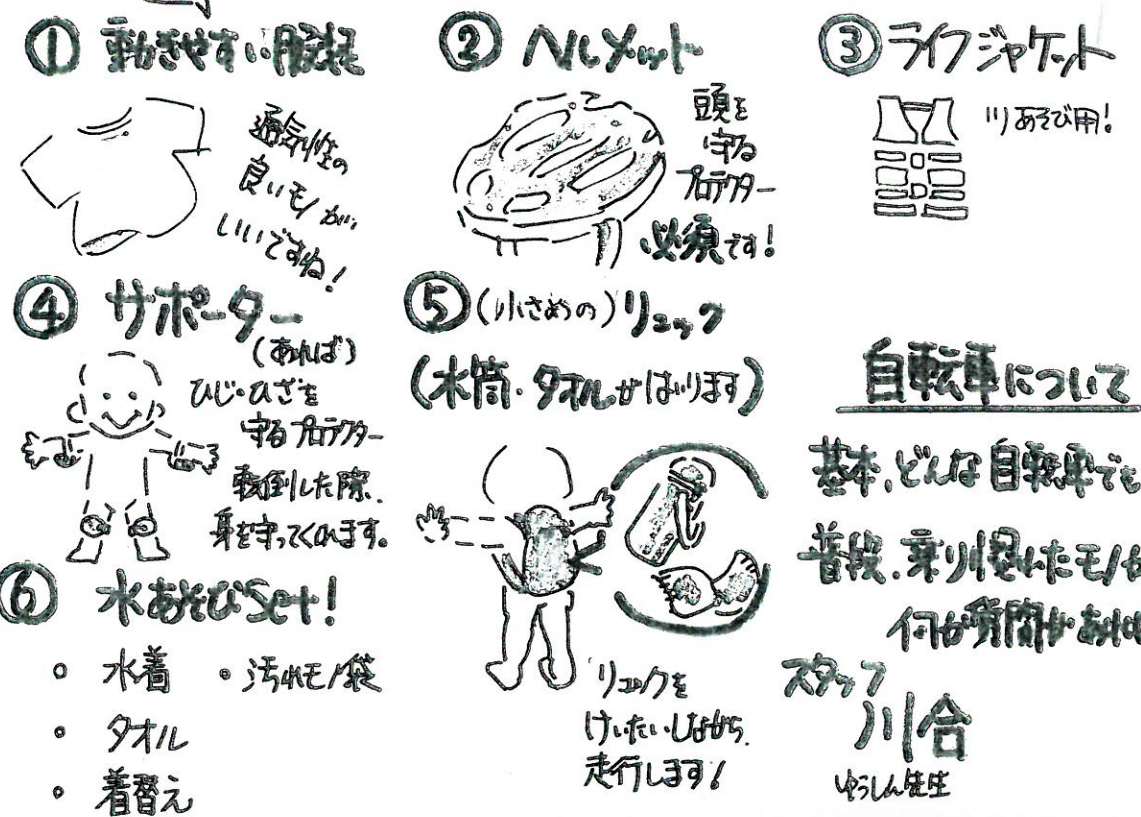 ① 動きやすい服装
通気性の
良いモノが、
いいですね！
② ヘルメット
頭を
守る
プロテクター
必須です！
③ ライフジャケット
川あそび用！
④ サポーター
(あれば)
ひじ・ひざを
守るプロテクター
転倒した際、
身を守ってくれます。
⑤ (小さめの)リュック
(水筒・タオルがはいります)
リュックを
けいたいしながら、
走行します！
⑥ 水あそびSet！
・ 水着 ・汚れモノ袋
・ タオル
・ 着替え
自転車について
基本、どんな自転車でも
普段、乗り慣れたモノが
何か質問があれば
スタッフ
川合
ゆうしん先生